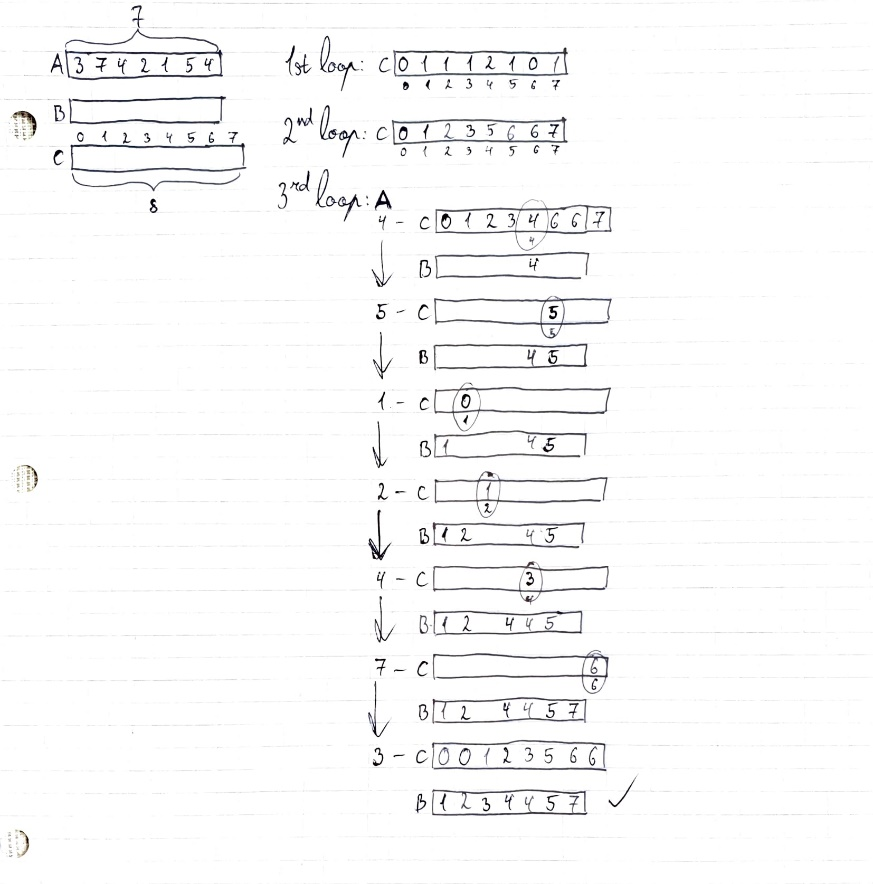 7
A 3 7 4 2 1 5 4
B
0 1 2 3 4 5 6 7
C
8
1st loop: C 0 1 1 1 2 1 0 1
0 1 2 3 4 5 6 7
2nd loop: C 0 1 2 3 5 6 6 7
0 1 2 3 4 5 6 7
3rd loop: A
4 - C 0 1 2 3 4 6 6 7
4
B 4
5 - C 5
5
B 4 5
1 - C 0
1
B 1 4 5
2 - C 1
2
B 1 2 4 5
4 - C 3
4
B 1 2 4 4 5
7 - C 6
6
B 1 2 4 4 5 7
3 - C 0 0 1 2 3 5 6 6
B 1 2 3 4 4 5 7 ✓